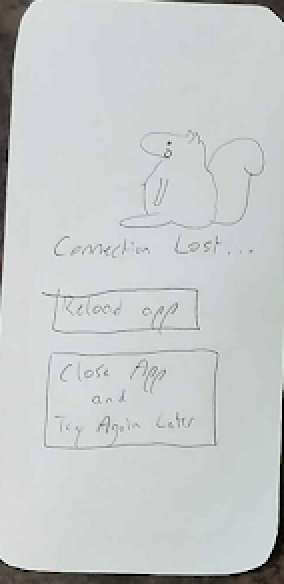 Connection Lost...
Reload app
Close App
and
Try Again Later